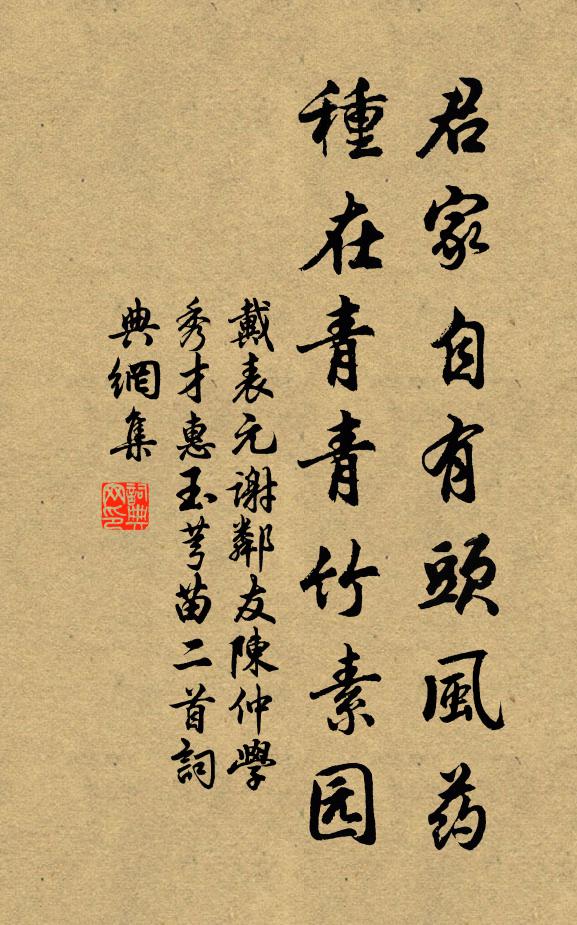 君家自有頭風药
種在青青竹素园
戴表元謝鄰友陳仲學
秀才惠玉芎苗二首詞
典網集
詞典
网印